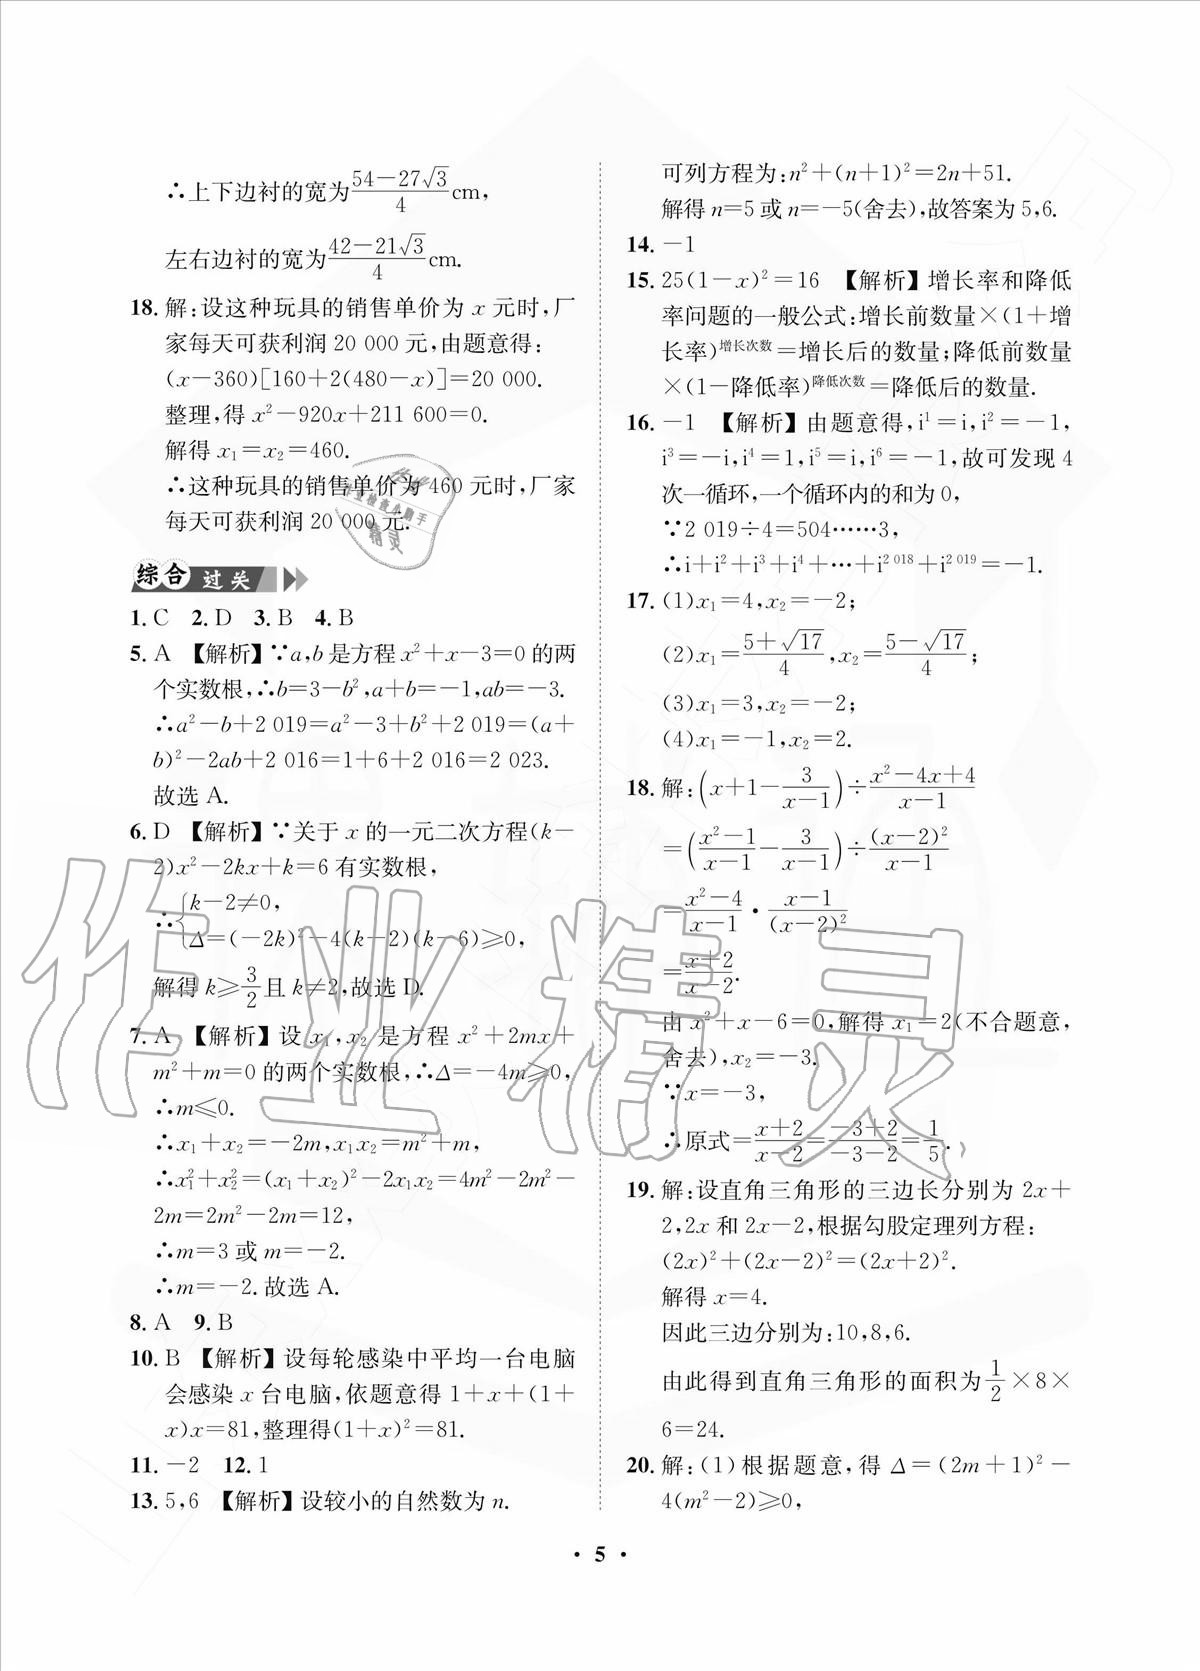 ∴上下边衬的宽为(54−27√3)/4 cm,
左右边衬的宽为(42−21√3)/4 cm.
18. 解:设这种玩具的销售单价为 x 元时,厂
家每天可获利润 20 000 元,由题意得:
(x−360)[160+2(480−x)]=20 000.
整理,得 x²−920x+211 600=0.
解得 x₁=x₂=460.
∴这种玩具的销售单价为 460 元时,厂家
每天可获利润 20 000 元.
综合过关
1. C 2. D 3. B 4. B
5. A 【解析】∵a,b 是方程 x²+x−3=0 的两
个实数根,∴b=3−b²,a+b=−1,ab=−3.
∴a²−b+2 019=a²−3+b²+2 019=(a+
b)²−2ab+2 016=1+6+2 016=2 023.
故选 A.
6. D 【解析】∵关于 x 的一元二次方程(k−
2)x²−2kx+k=6 有实数根,
∴{k−2≠0,
Δ=(−2k)²−4(k−2)(k−6)≥0,
解得 k≥3/2 且 k≠2,故选 D.
7. A 【解析】设 x₁,x₂ 是方程 x²+2mx+
m²+m=0 的两个实数根,∴Δ=−4m≥0,
∴m≤0.
∴x₁+x₂=−2m,x₁x₂=m²+m,
∴x₁²+x₂²=(x₁+x₂)²−2x₁x₂=4m²−2m²−
2m=2m²−2m=12,
∴m=3 或 m=−2.
∴m=−2.故选 A.
8. A 9. B
10. B 【解析】设每轮感染中平均一台电脑
会感染 x 台电脑,依题意得 1+x+(1+
x)x=81,整理得(1+x)²=81.
11. −2 12. 1
13. 5,6 【解析】设较小的自然数为 n.
可列方程为:n²+(n+1)²=2n+51.
解得 n=5 或 n=−5(舍去),故答案为 5,6.
14. −1
15. 25(1−x)²=16 【解析】增长率和降低
率问题的一般公式:增长前数量×(1+增
长率)^增长次数=增长后的数量;降低前数量
×(1−降低率)^降低次数=降低后的数量.
16. −1 【解析】由题意得,i¹=i,i²=−1,
i³=−i,i⁴=1,i⁵=i,i⁶=−1,故可发现 4
次一循环,一个循环内的和为 0,
∵2 019÷4=504……3,
∴i+i²+i³+i⁴+…+i²⁰¹⁸+i²⁰¹⁹=−1.
17. (1)x₁=4,x₂=−2;
(2)x₁=(5+√17)/4,x₂=(5−√17)/4;
(3)x₁=3,x₂=−2;
(4)x₁=−1,x₂=2.
18. 解:(x+1−3/(x−1))÷(x²−4x+4)/(x−1)
=((x²−1)/(x−1)−3/(x−1))÷(x−2)²/(x−1)
=(x²−4)/(x−1)·(x−1)/(x−2)²
=(x+2)/(x−2).
由 x²+x−6=0,解得 x₁=2(不合题意,
舍去),x₂=−3.
∵x=−3,
∴原式=(x+2)/(x−2)=(−3+2)/(−3−2)=1/5.
19. 解:设直角三角形的三边长分别为 2x+
2,2x 和 2x−2,根据勾股定理列方程:
(2x)²+(2x−2)²=(2x+2)².
解得 x=4.
因此三边分别为:10,8,6.
由此得到直角三角形的面积为 1/2×8×
6=24.
20. 解:(1)根据题意,得 Δ=(2m+1)²−
4(m²−2)≥0,
· 5 ·
作业精灵